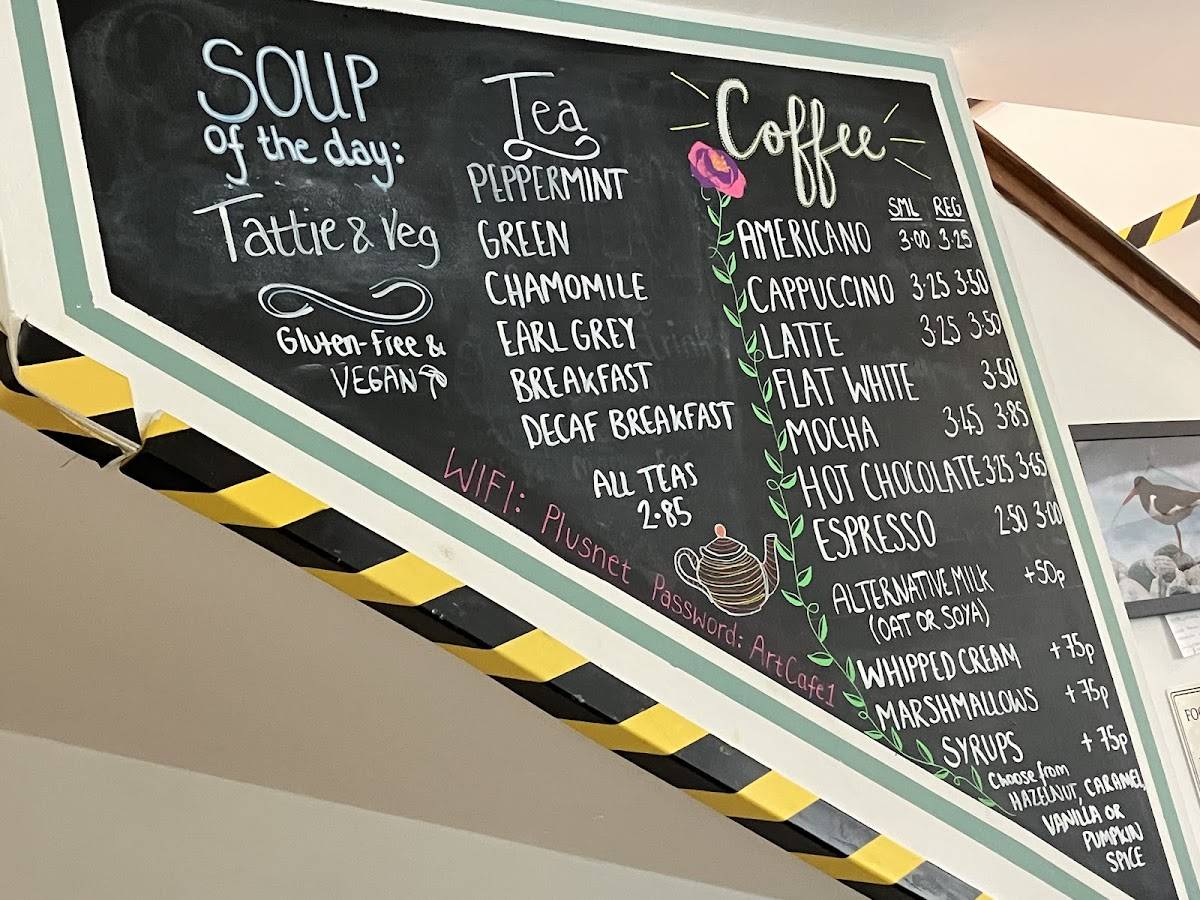 SOUP
of the day:
Tattie & Veg
Gluten-free &
VEGAN
Tea
PEPPERMINT
GREEN
CHAMOMILE
EARL GREY
BREAKFAST
DECAF BREAKFAST
ALL TEAS
2.85
WIFI: Plusnet Password: ArtCafe1
Coffee
SML REG
AMERICANO 3.00 3.25
CAPPUCCINO 3.25 3.50
LATTE 3.25 3.50
FLAT WHITE 3.50
MOCHA 3.45 3.85
HOT CHOCOLATE 3.25 3.65
ESPRESSO 2.50 3.00
ALTERNATIVE MILK +50p
(OAT OR SOYA)
WHIPPED CREAM +75p
MARSHMALLOWS +75p
SYRUPS +75p
Choose from
HAZELNUT, CARAMEL,
VANILLA OR
PUMPKIN
SPICE